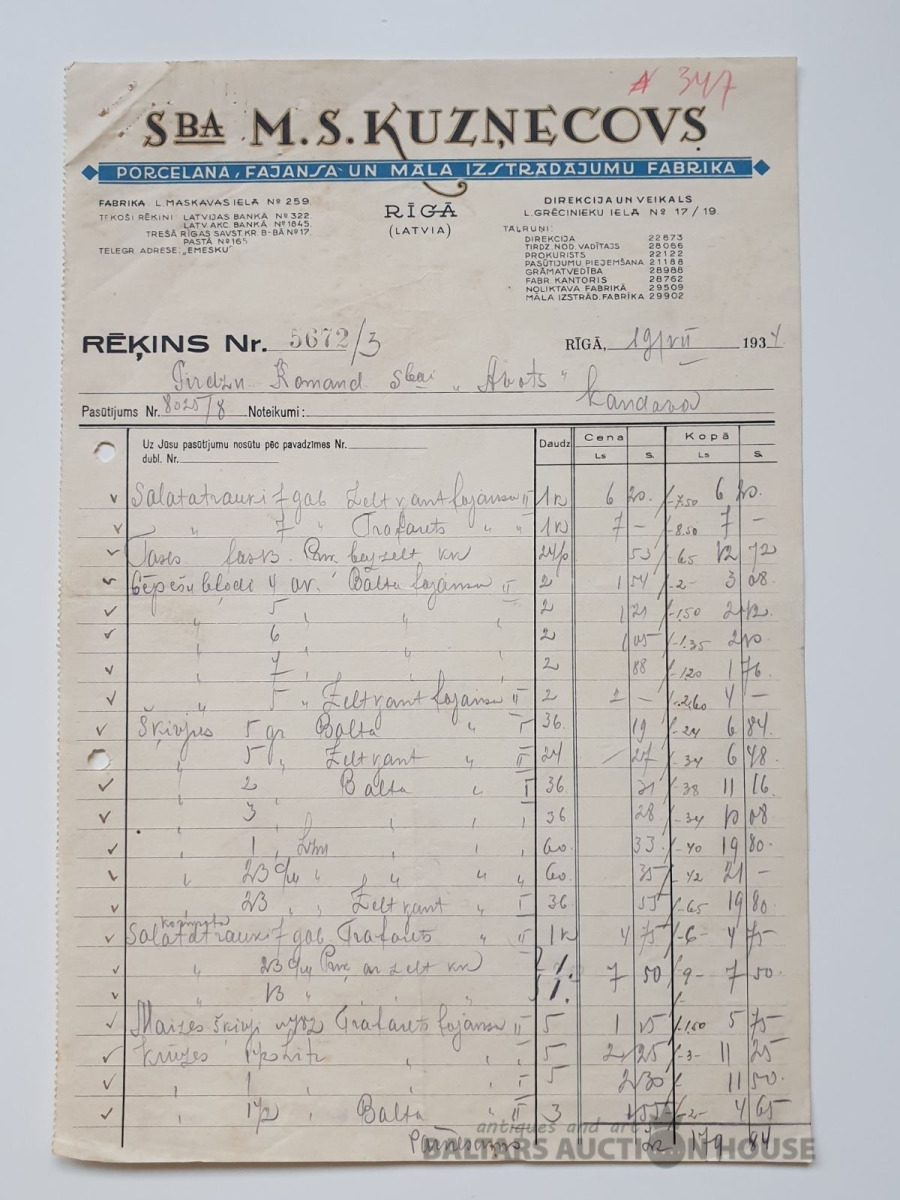 347
SBA M.S.KUZŅECOVS
PORCELANA, FAJANSA UN MĀLA IZSTRĀDĀJUMU FABRIKA
FABRIKA L.MASKAVAS IELĀ № 259
TEKOŠI RĒĶINI: LATVIJAS BANKĀ № 322
LATV.AKC.BANKĀ № 1845
TREŠĀ RĪGAS SAVST.KR.B-BĀ № 17
PASTĀ № 165
TELEGR. ADRESE: „EMESKU"
RĪGĀ
(LATVIA)
DIREKCIJA UN VEIKALS
L.GRĒCINIEKU IELĀ № 17/19
TĀLRUŅI:
DIREKCIJA 22873
TIRDZ.NOD.VADĪTAJS 28066
PROKURISTS 22122
PASŪTĪJUMU PIEJEMŠANA 21188
GRĀMATVEDĪBA 28988
FABR KANTORIS 28762
NOLIKTAVA FABRIKĀ 29509
MĀLA IZSTRĀD.FABRIKA 29902
RĒĶINS Nr. 5672/3 RĪGĀ, 19/VII 1934
Tirdzn. Komand. sbai „Avots"
Kandavā
Pasūtījums Nr. 8025/8 Noteikumi:
Uz Jūsu pasūtījumu nosūtu pēc pavadzīmes Nr.
dubl. Nr.
Daudz Cena Kopā
Ls S. Ls S.
Salatatrauki 7 gab Zeltzant fajansa II 1 6 20. -7.50 6 20.
" 7 " Trafarets " " 1 7 - -8.50 7 -
Tases 53 -65 12 72
4 Balta fajansa II 2 1 54 -2- 3 08
" 5 " " 2 1 21 -1.50 2 42
" 6 " " 2 1 05 -1.35 2 10
" 7 " " 2 88 -1.20 1 76
" 5 " Zeltzant fajansa II 2 2 - -2.60 4 -
Šķivjus 5 gr Balta " I 36. 19 -24 6 84.
" 5 " Zeltzant " II 24 27 -34 6 48
" 2 Balta " I 36. 31 -38 11 16.
" 3 " " " 36 28 -34 10 08
" 1 " " " 60. 33. -40 19 80.
" 2/3 " " " " 60. 35 -42 21 -
" 2/3 " Zeltzant " I 36 55 -65 19 80.
kompota
Salatatrauki 7 gab Trafarets " II 1 4 75 -6- 4 75
" 2/3 ar zelt 7 50 -9- 7 50
" 1/3 "
Maizes šķivji Trafarets fajansa II 5 1 15 -1.50 5 75
Krūzes 1 1/2 Litr " " 5 2 25 -3- 11 25
" 1 " " I 5 2 30 11 50.
" 1 1/2 " Balta " II 3 1 55 -2- 4 65
Pārnesums Ls 179 84
antiques and art
BALTARS AUCTION HOUSE